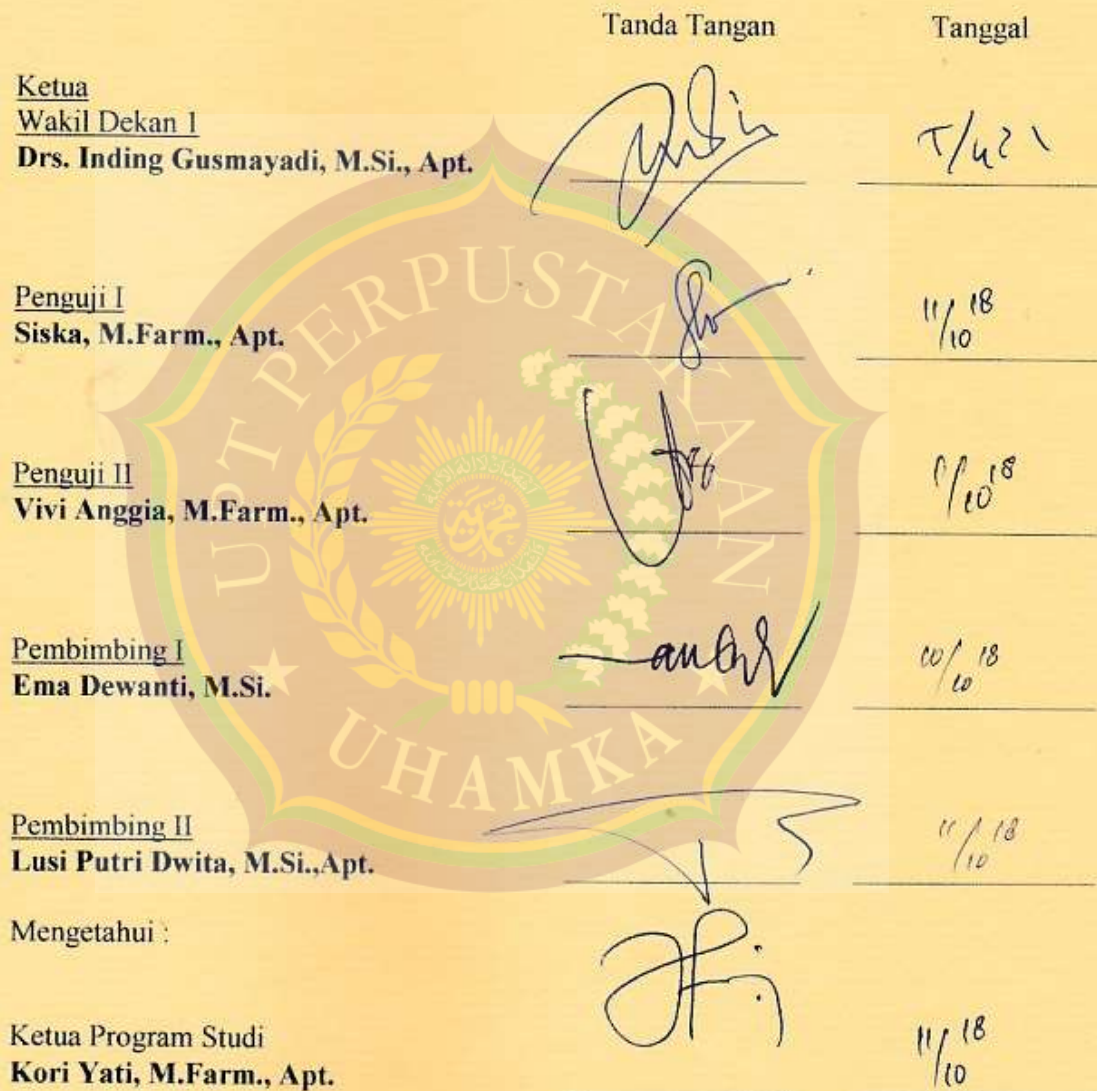 Tanda Tangan Tanggal
Ketua
Wakil Dekan 1
Drs. Inding Gusmayadi, M.Si., Apt.
Penguji I
Siska, M.Farm., Apt.
11/10 18
Penguji II
Vivi Anggia, M.Farm., Apt.
/10 18
Pembimbing I
Ema Dewanti, M.Si.
10/10 18
Pembimbing II
Lusi Putri Dwita, M.Si.,Apt.
11/10 18
Mengetahui :
Ketua Program Studi
Kori Yati, M.Farm., Apt.
11/10 18
UPT PERPUSTAKAAN
UHAMKA
محمد